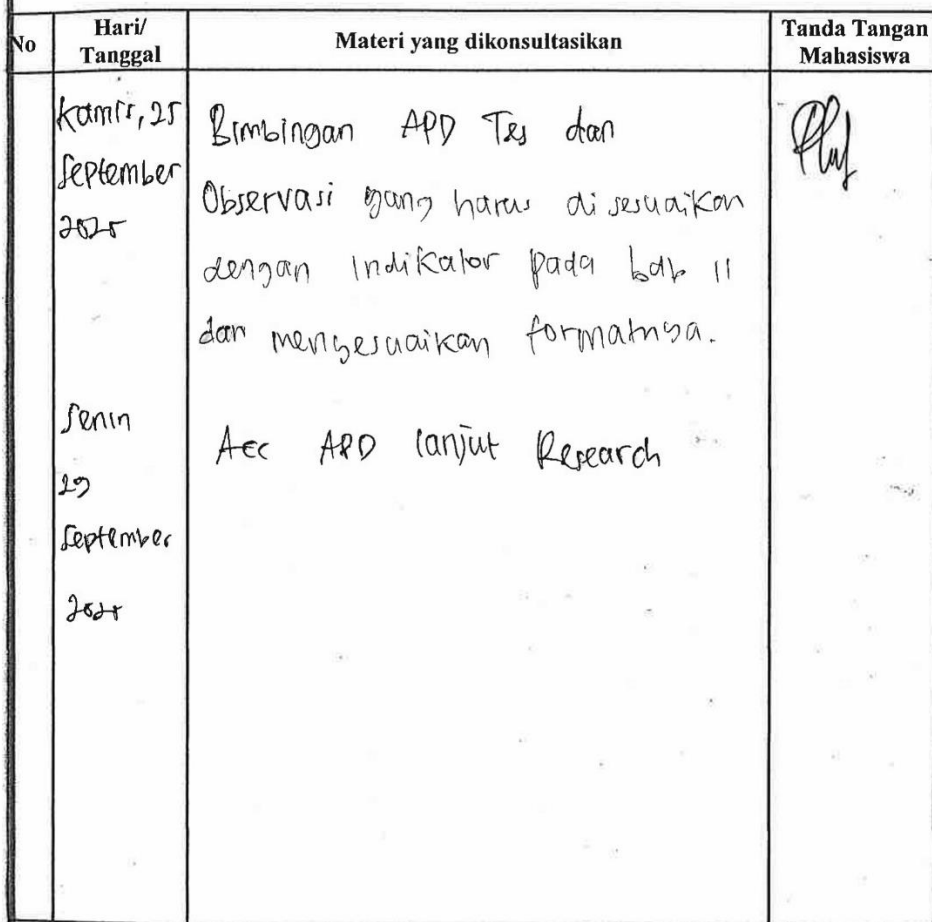 No
Hari/
Tanggal
Materi yang dikonsultasikan
Tanda Tangan
Mahasiswa
Kamis, 25
September
2025
Bimbingan APD Tes dan
Observasi yang harus disesuaikan
dengan Indikator pada bab II
dan menyesuaikan formatnya.
Senin
29
September
2025
Acc APD lanjut Research